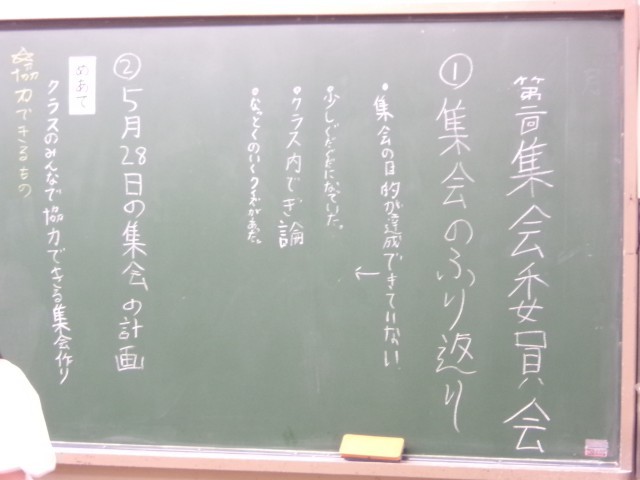 第一回集会委員会
①集会のふり返り
・集会の目的が達成できていない
←
少しぐだぐだになっていた。
・クラス内でぎ論
・なっとくのいくクイズがあった。
②5月28日の集会の計画
めあて
クラスのみんなで協力できる集会作り
協力できるもの